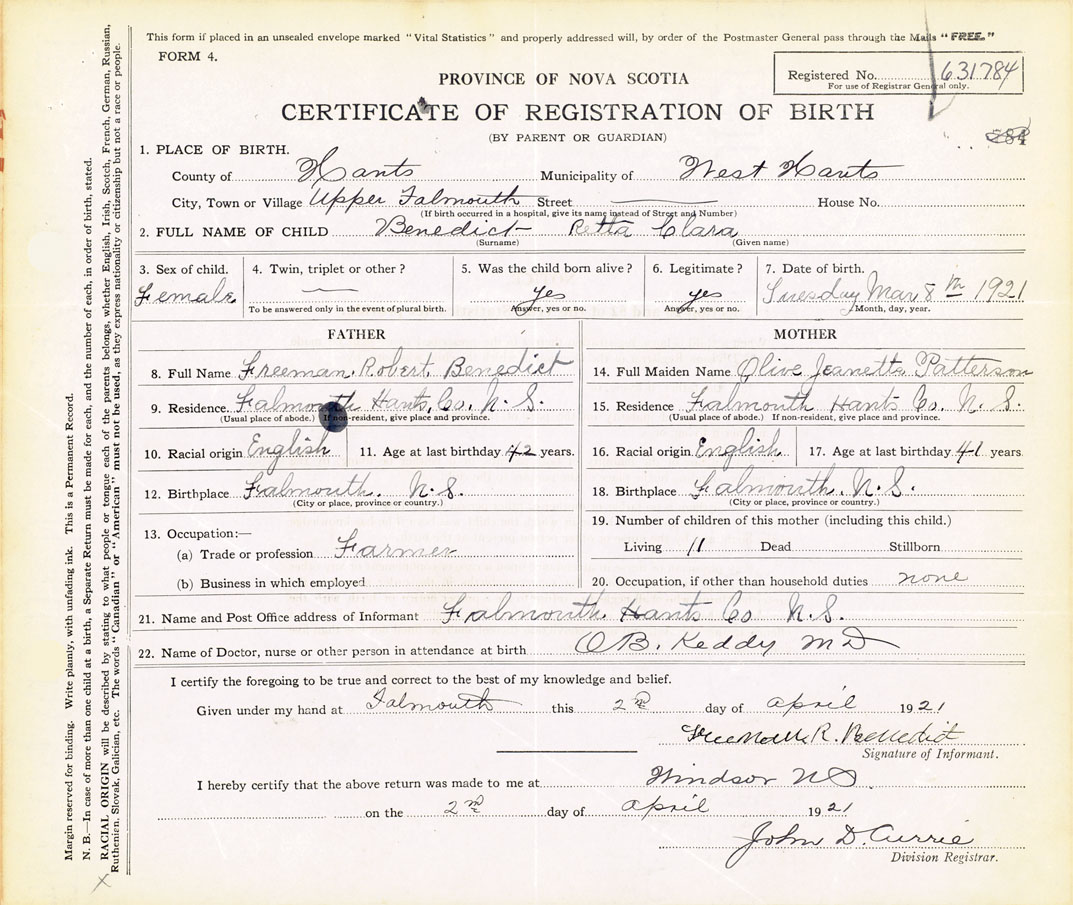 This form if placed in an unsealed envelope marked "Vital Statistics" and properly addressed will, by order of the Postmaster General pass through the Mails "FREE."
FORM 4.
PROVINCE OF NOVA SCOTIA
Registered No. 631784
For use of Registrar General only.
CERTIFICATE OF REGISTRATION OF BIRTH
(BY PARENT OR GUARDIAN)
584
1. PLACE OF BIRTH.
County of Hants Municipality of West Hants
City, Town or Village Upper Falmouth Street House No.
(If birth occurred in a hospital, give its name instead of Street and Number)
2. FULL NAME OF CHILD Benedict Retta Clara
(Surname) (Given name)
3. Sex of child. 4. Twin, triplet or other? 5. Was the child born alive? 6. Legitimate? 7. Date of birth.
Female yes yes Tuesday Mar 8th 1921
To be answered only in the event of plural birth. Answer, yes or no. Answer, yes or no. Month, day, year.
FATHER MOTHER
8. Full Name Freeman Robert Benedict 14. Full Maiden Name Olive Jeanette Patterson
9. Residence Falmouth Hants, Co. N. S. 15. Residence Falmouth Hants Co. N. S.
(Usual place of abode.) If non-resident, give place and province. (Usual place of abode.) If non-resident, give place and province.
10. Racial origin English 11. Age at last birthday 42 years. 16. Racial origin English 17. Age at last birthday 41 years
12. Birthplace Falmouth. N.S. 18. Birthplace Falmouth. N.S.
(City or place, province or country.) (City or place, province or country.)
13. Occupation:— 19. Number of children of this mother (including this child.)
(a) Trade or profession Farmer Living 11 Dead Stillborn
(b) Business in which employed 20. Occupation, if other than household duties none
21. Name and Post Office address of Informant Falmouth Hants Co N.S.
22. Name of Doctor, nurse or other person in attendance at birth O B. Keddy M D
I certify the foregoing to be true and correct to the best of my knowledge and belief.
Given under my hand at Falmouth this 2nd day of April 1921
Freeman R. Benedict
Signature of Informant.
I hereby certify that the above return was made to me at Windsor NS
on the 2nd day of April 1921
John D. Currie
Division Registrar.
Margin reserved for binding. Write plainly, with unfading ink. This is a Permanent Record.
N. B.—In case of more than one child at a birth, a Separate Return must be made for each, and the number of each, in order of birth, stated.
RACIAL ORIGIN will be described by stating to what people or tongue each of the parents belongs, whether English, Irish, Scotch, French, German, Russian,
Ruthenien, Slovak, Galician, etc. The words "Canadian" or "American" must not be used, as they express nationality or citizenship but not a race or people.
X